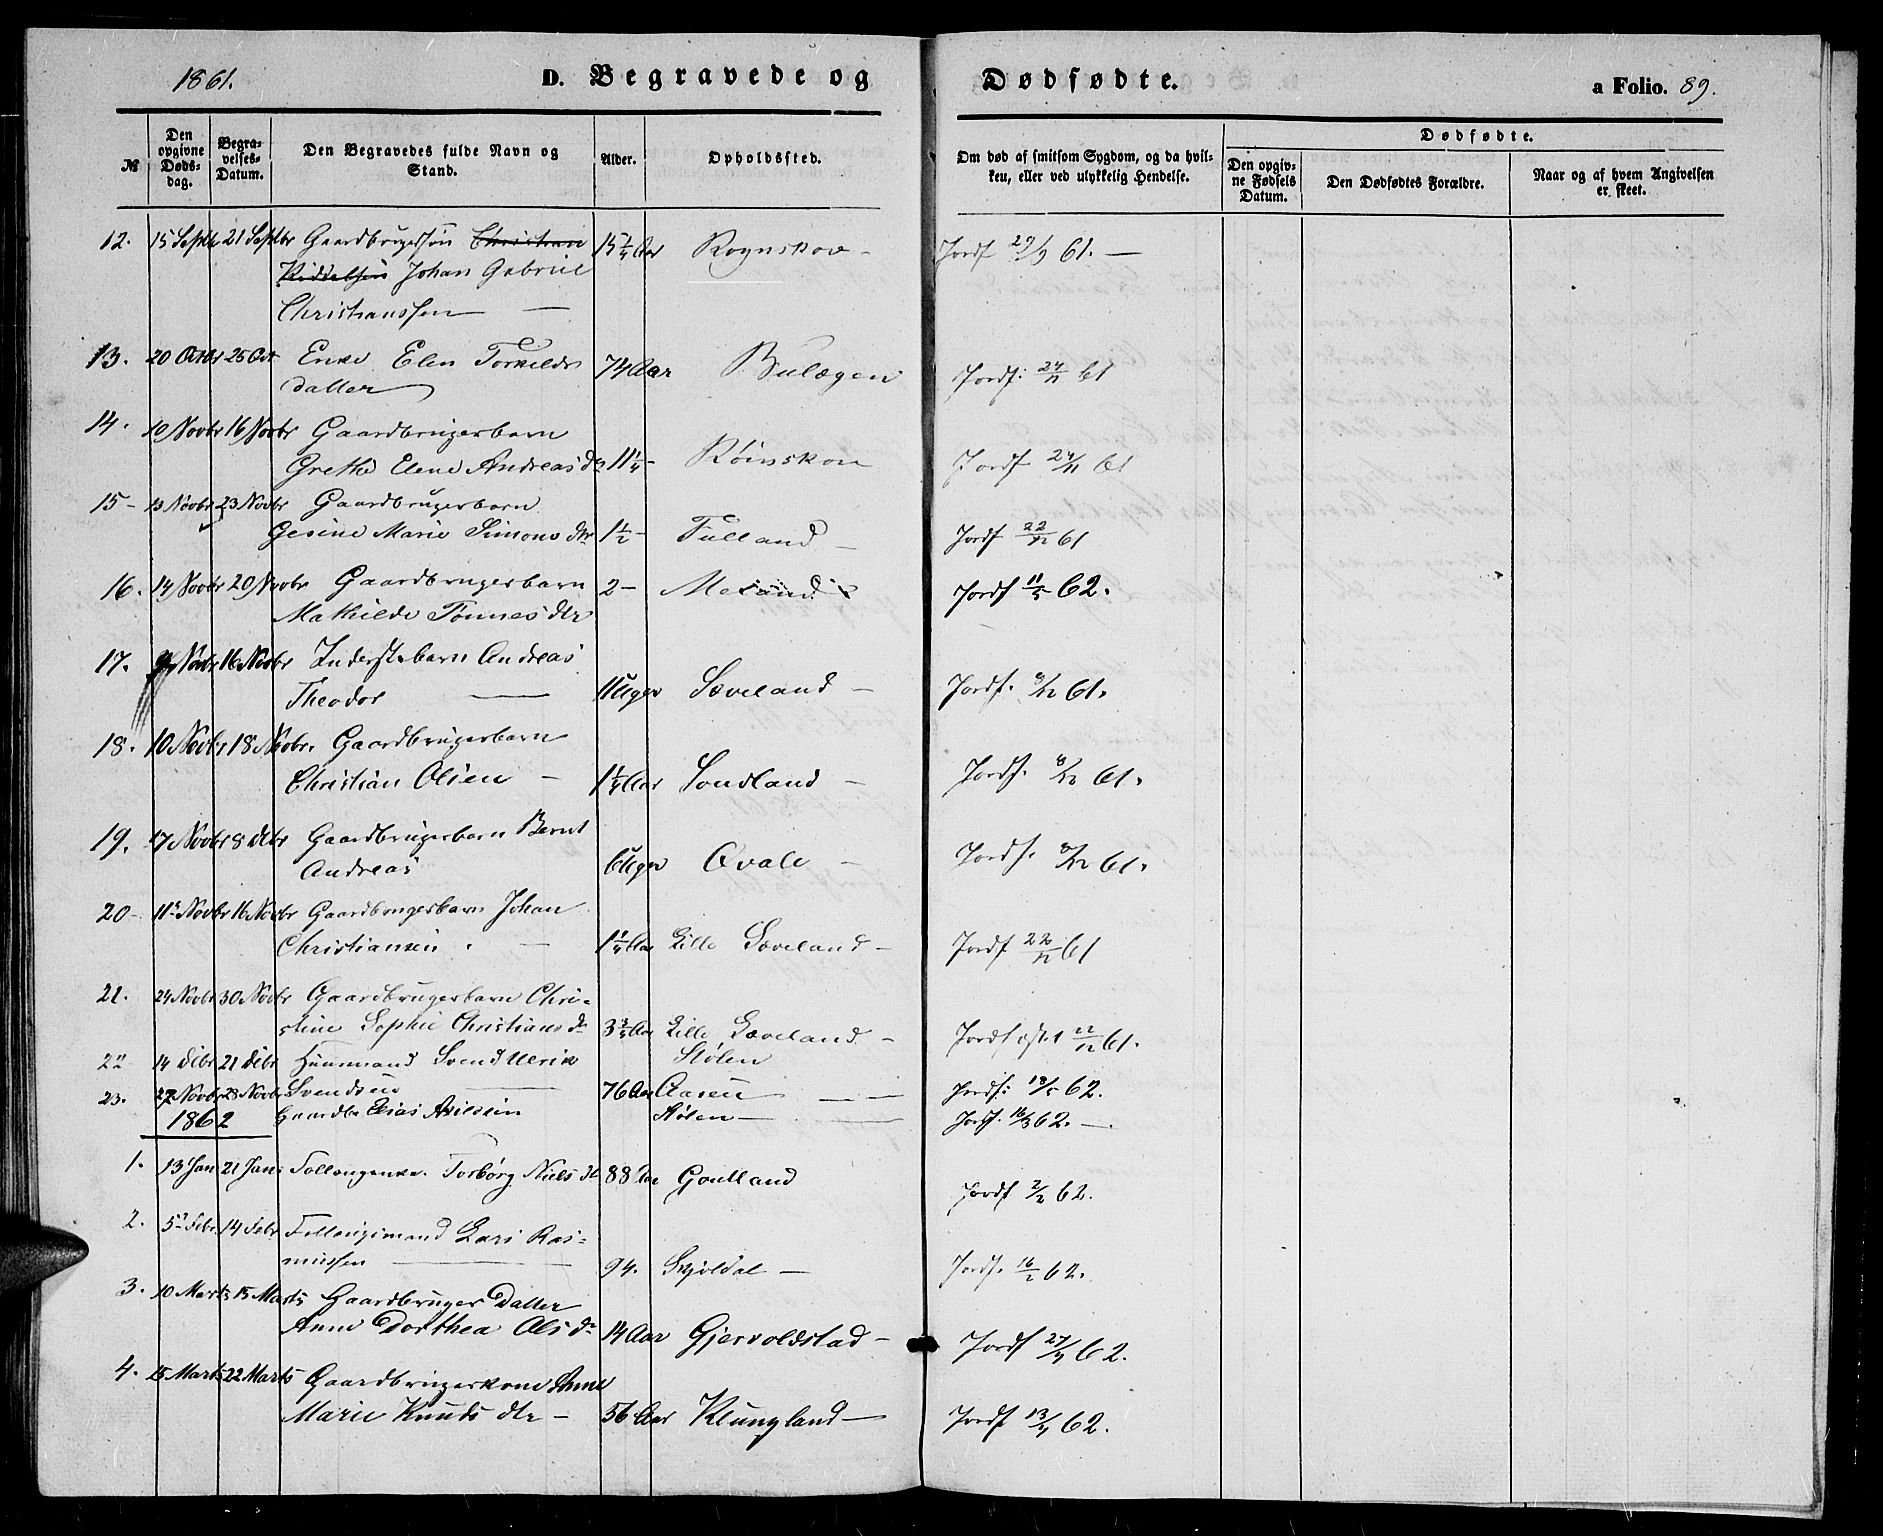 1861.
D. Begravede og
Dødfødte.
a Folio. 89.
№
Den opgivne Døds-dag.
Begra-velses-Datum.
Den Begravedes fulde Navn og Stand.
Alder.
Opholdssted.
Om død af smitsom Sygdom, og da hvil-ken, eller ved ulykkelig Hendelse.
Dødfødte.
Den opgiv-ne Fødsels Datum.
Den Dødfødtes Forældre.
Naar og af hvem Angivelsen er skeet.
12. 15 Septbr 21 Septbr Gaardbrugersøn Christian
Johan Gabriel 15 1/4 Aar Rognskov - Jordf 29/9 61. -
Christianssen -
13. 20 Octbr 26 Oct Enke Elen Torkilds
datter 74 Aar Bulægen Jordf: 24/11 61
14. 10 Novbr 16 Novbr Gaardbrugerbarn
Grethe Elene Andreas dr 11 1/4 - Røinskou Jordf 24/11 61
15 - 13 Novbr 23 Novbr Gaardbrugerbarn
Gesine Marie Simons dtr 1 1/2 - Tulland - Jordf 22/12 61
16. 14 Novbr 20 Novbr Gaardbrugerbarn 2 - Meland Jordf 11/5 62.
Mathilde Tønnes dtr
17. 9 Novbr 16 Novbr Inderstebarn Andreas
Theodor - 11 Uger Sæveland - Jordf. 8/12 61.
18. 10 Novbr 18 Novbr. Gaardbrugerbarn
Christian Olsen - 1 1/4 Aar Sondland - Jordf. 8/12 61.
19. 17 Novbr 8 Dbr Gaardbrugerbarn Bernt
Andreas 6 Uger Qvale - Jordf. 8/12 61.
20 - 11 Novbr 16 Novbr Gaardbrugerbarn Johan
Christiansen - 1 1/4 Aar Lille Sæveland - Jordf 22/12 61
21. 24 Novbr 30 Novbr Gaardbrugerbarn Chri-
stine Sophie Christians dr 3 3/4 Aar Lille Sæveland - Jordfæstet 22/12 61.
22 14 Dbr 21 Dbr Huusmand Svend Ulrik Stølen
Svendsen 76 Aar Aasen - Jordf: 18/5 62.
23. 27 Novbr 28 Novbr Gaardbr Elias Stølen - Jordf. 16/3 62. -
1862
1. 13 Jan 21 Jan Follougenke. Torborg Niels dtr 88 Aar Goulland Jordf 2/2 62.
2. 5 Febr 14 Febr Follougimand Lars Ras-
mussen - 94. Skjoldal - Jordf. 16/2 62.
3. 10 Marts 15 Marts Gaardbruger Datter
Anne Dorthea Ols dr 14 Aar Gjervoldstad - Jordf 27/4 62.
4. 15 Marts 22 Marts Gaardbrugerkone Anne
Marie Knuds dtr - 56 Aar Klungland - Jordf 13/4 62.